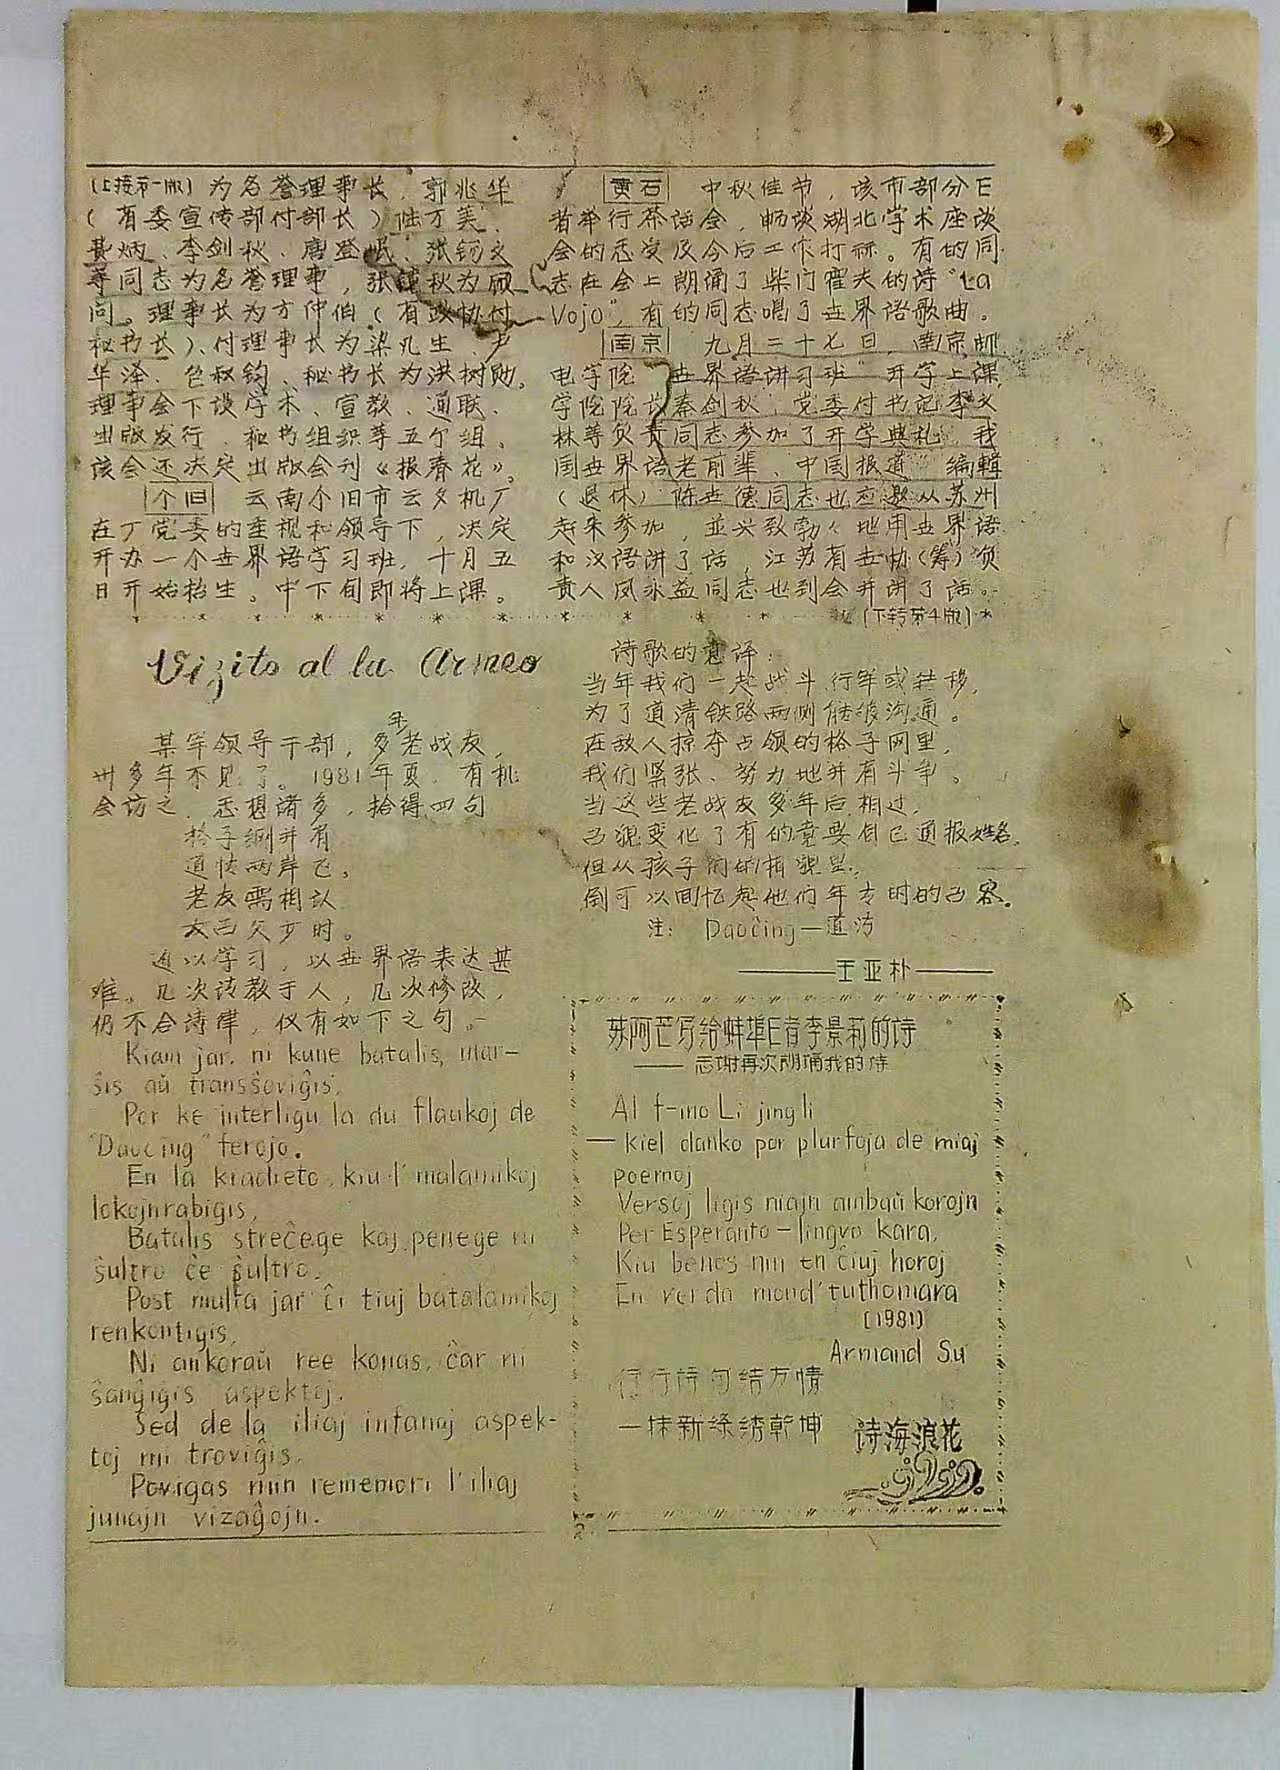 (上接第一版) 为名誉理事长、郭兆华
(省委宣传部付部长)陆万美、
炳、李剑秋、唐登岷、张钧文
等同志为名誉理事，张镜秋为顾
问。理事长为方仲伯(省政协付
秘书长)、付理事长为梁九生、卢
华泽、包叔钧、秘书长为洪树勋。
理事会下设学术、宣教、通联、
出版发行、秘书组织等五个组。
该会还决定出版会刊《报春花》。
个旧 云南个旧市云夕机厂
在厂党委的重视和领导下，决定
开办一个世界语学习班，十月五
日开始招生。中下旬即将上课。
黄石 中秋佳节，该市部分E
者举行茶话会，畅谈湖北学术座谈
会的感受及今后工作打祘。有的同
志在会上朗诵了柴门霍夫的诗"La
Vojo"，有的同志唱了世界语歌曲。
南京 九月二十七日，南京邮
电学院"世界语讲习班"开学上课，
学院院长秦剑秋，党委付书记李文
林等负责同志参加了开学典礼，我
国世界语老前辈、中国报道"编辑
(退休)陈世德同志也应邀从苏州
赶来参加，並兴致勃勃地用世界语
和汉语讲了话，江苏省世协(筹)负
责人凤永益同志也到会并讲了话。
(下转第4版)
Vizito al la Armeo
某军领导干部，多年老战友，
卅多年不见了。1981年夏、有机
会访之、感想诸多，拾得四句
格子網并肩
道忱两岸飞。
老友需相认
女西父少时。
以学习，以世界语表达甚
难。几次请教于人，几次修改，
仍不合诗律，仅有如下之句。
Kiam jar. ni kune batalis, mar-
ŝis aŭ transŝoviĝis,
Por ke interligu la du flankoj de
"Daocing" ferojo.
En la kradreto, kiu l' malamikoj
lokojn rabigis,
Batalis streĉege kaj penege ni
ŝultro ĉe ŝultro.
Post multa jar' ĉi tiuj batalamikoj
renkontiĝis,
Ni ankoraŭ ree konas, ĉar ni
ŝanĝiĝis aspektoj.
Sed de la iliaj infanoj aspek-
toj ni troviĝis,
Povigas nin rememori l' iliaj
junajn vizaĝojn.
诗歌的意译：
当年我们一起战斗、行军或转移，
为了道清铁路两侧能够沟通。
在敌人掠夺占领的格子网里，
我们紧张、努力地并肩斗争。
当这些老战友多年后相过，
面貌变化了有的竟要自己通报姓名，
但从孩子们的相貌里，
倒可以回忆起他们年青时的面容。
注： Daoĉing—道清
——王亚朴——
苏阿芒写给蚌埠E者李景莉的诗
—— 感谢再次朗诵我的诗
Al f-ino Li jing li
— kiel danko por plurfoja de miaj
poemoj
Versoj ligis niajn ambaŭ korojn
Per Esperanto — lingvo kara,
Kiu benos nin en ĉiuj horoj
En verda mond' tuthomara
(1981)
Armand Su
行行诗句结友情
一抹新绿绣乾坤
诗海浪花
2